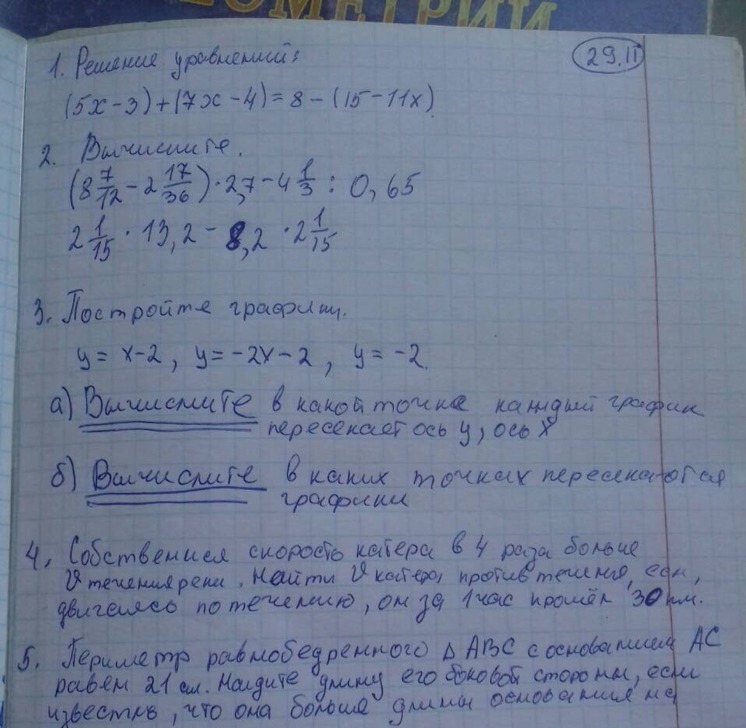 ГЕОМЕТРИИ
29.II
1. Решение уравнений:
(5x-3)+(7x-4)=8-(15-11x)
2. Вычислите.
(8 7/12 - 2 17/36) · 2,7 - 4 1/3 : 0,65
2 1/15 · 13,2 - 8,2 · 2 1/15
3. Постройте графики.
y = x-2, y = -2x-2, y = -2.
а) Вычислите в какой точке каждый график
пересекает ось y, ось x
б) Вычислите в каких точках пересекаются
графики
4. Собственная скорость катера в 4 раза больше
v течения реки. Найти v катера против течения, если,
двигаясь по течению, он за 1 час прошёл 30 км.
5. Периметр равнобедренного Δ ABC с основанием AC
равен 21 см. Найдите длину его боковой стороны, если
известно, что она больше длины основания на